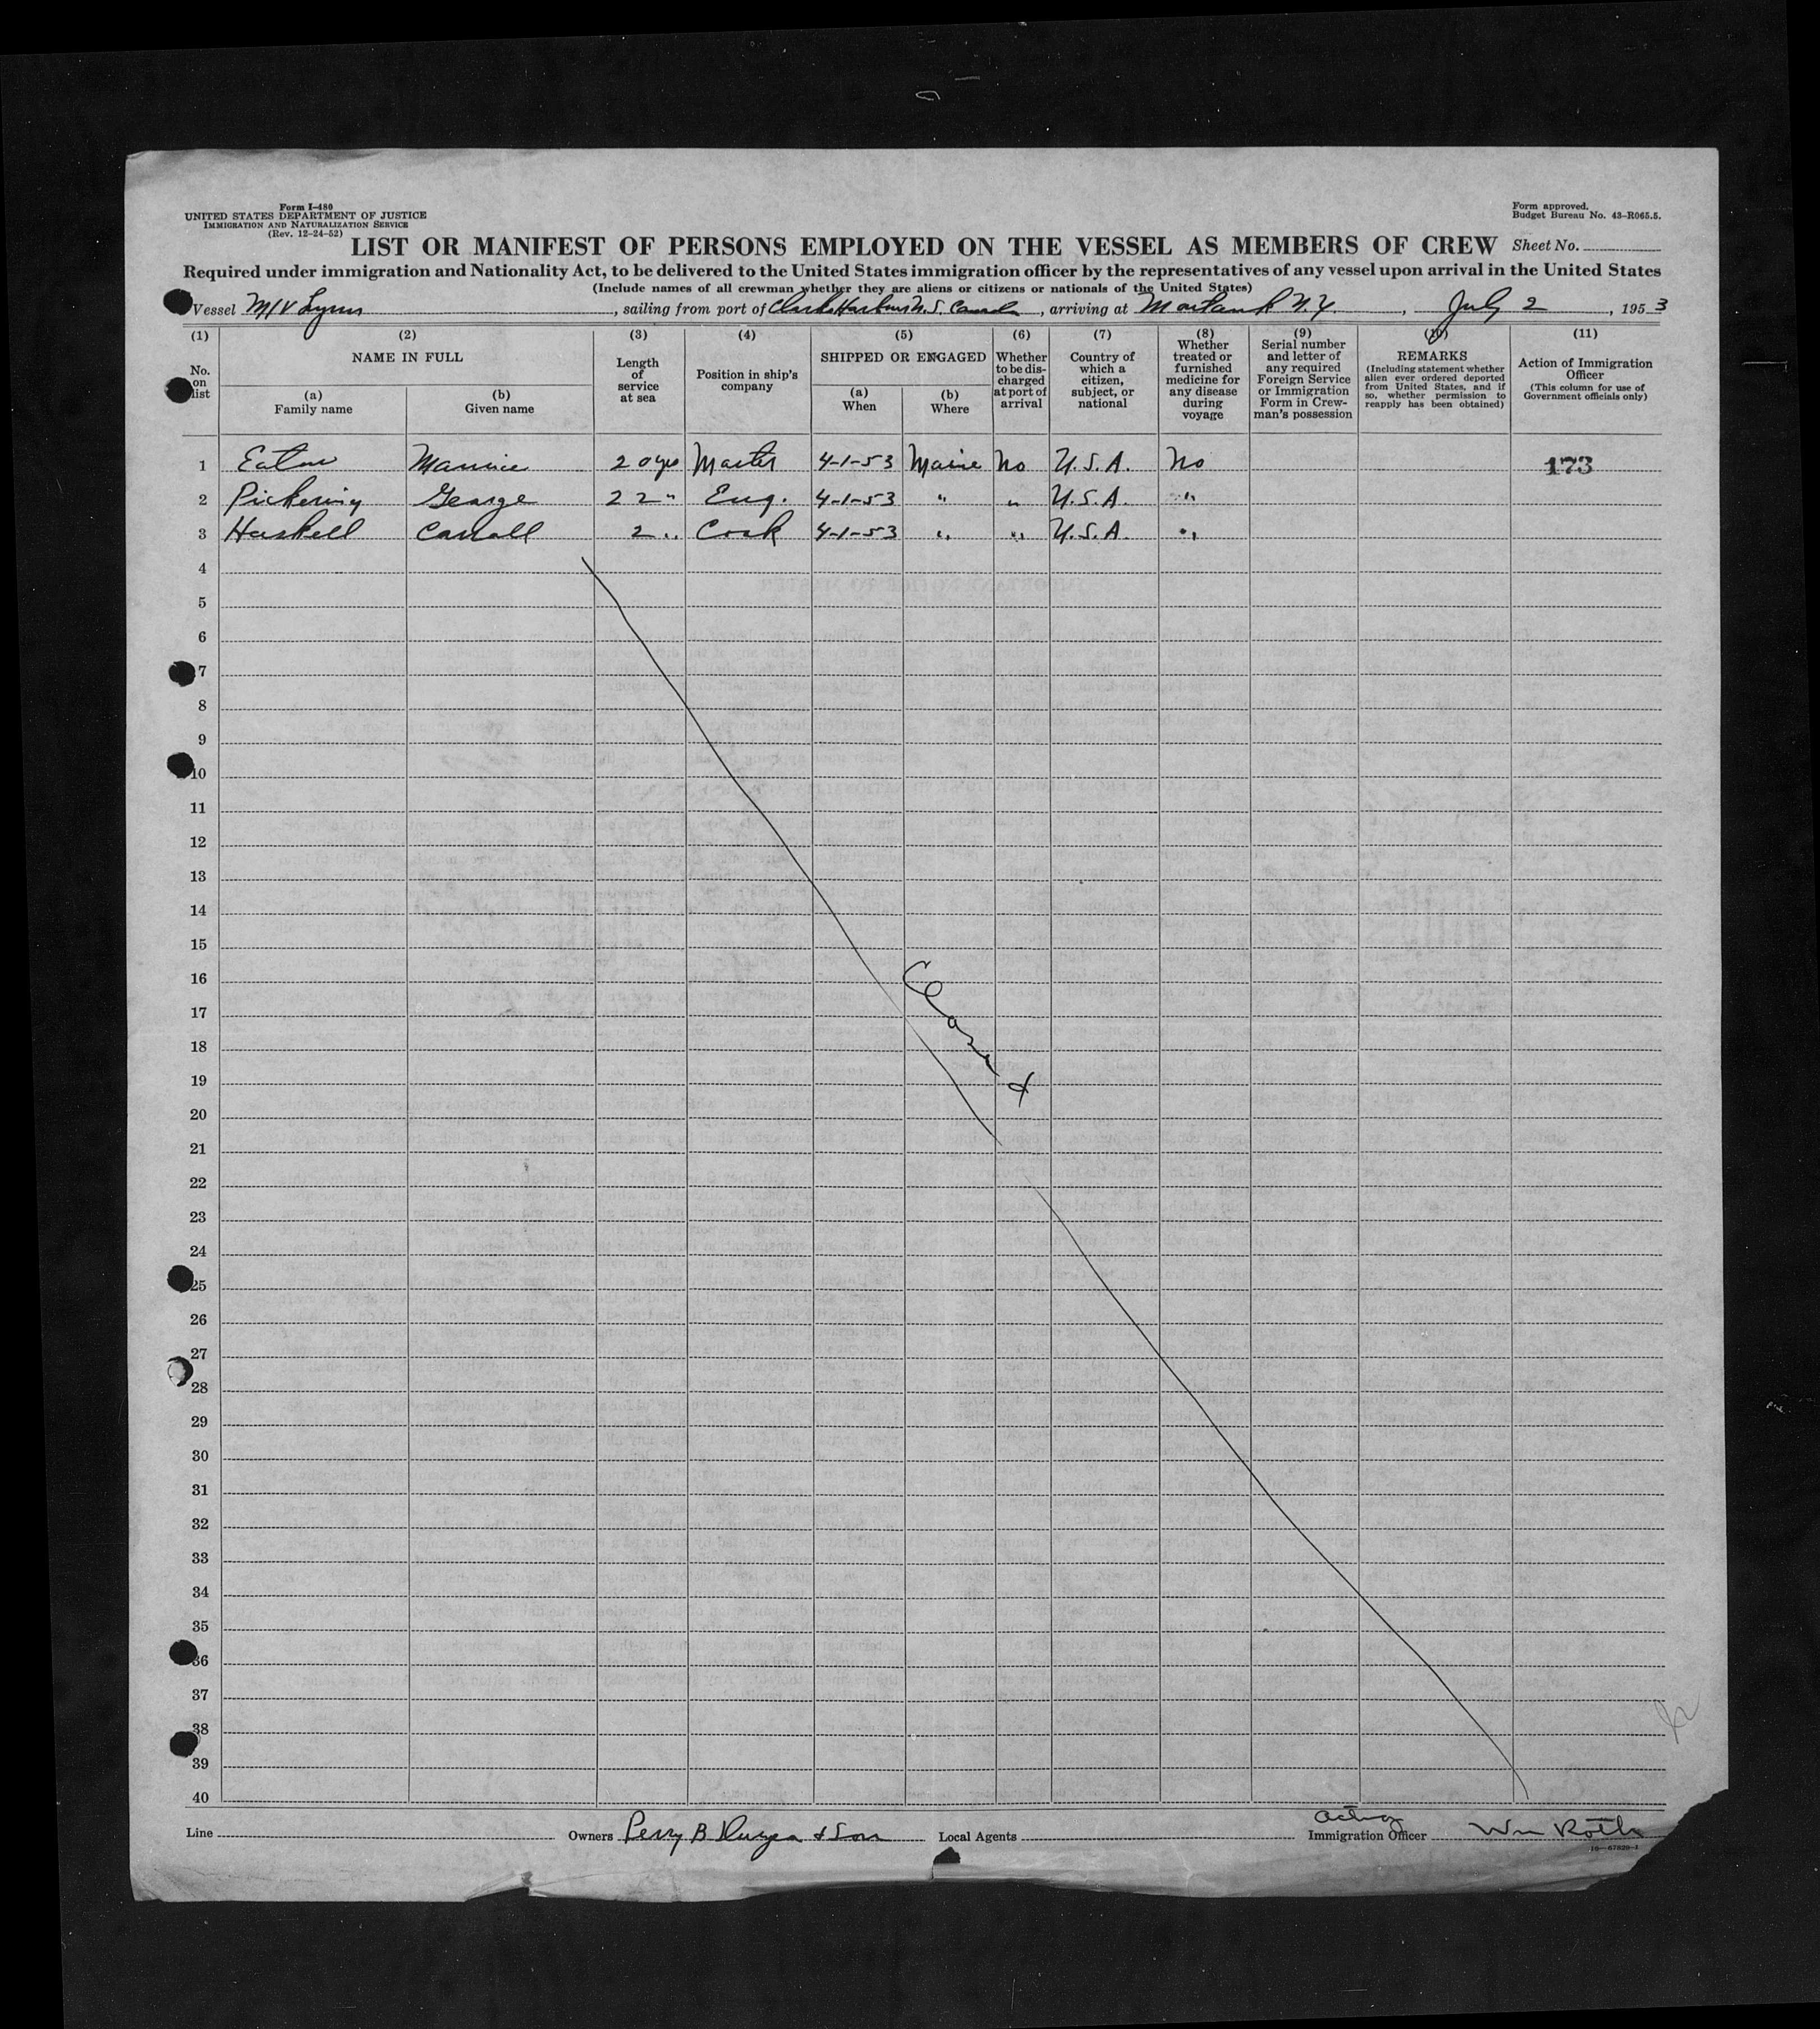 Form I-480
UNITED STATES DEPARTMENT OF JUSTICE
IMMIGRATION AND NATURALIZATION SERVICE
(Rev. 12-24-52)
Form approved.
Budget Bureau No. 43-R065.5.
LIST OR MANIFEST OF PERSONS EMPLOYED ON THE VESSEL AS MEMBERS OF CREW Sheet No.
Required under immigration and Nationality Act, to be delivered to the United States immigration officer by the representatives of any vessel upon arrival in the United States
(Include names of all crewman whether they are aliens or citizens or nationals of the United States)
Vessel M/V Lynn, sailing from port of Clarks Harbour N.S. Canada, arriving at Montauk N.Y., July 2, 1953
(1) (2) (3) (4) (5) (6) (7) (8) (9) (10) (11)
No. on list
NAME IN FULL
(a) Family name
(b) Given name
Length of service at sea
Position in ship's company
SHIPPED OR ENGAGED
(a) When
(b) Where
Whether to be discharged at port of arrival
Country of which a citizen, subject, or national
Whether treated or furnished medicine for any disease during voyage
Serial number and letter of any required Foreign Service or Immigration Form in Crewman's possession
REMARKS
(Including statement whether alien ever ordered deported from United States, and if so, whether permission to reapply has been obtained)
Action of Immigration Officer
(This column for use of Government officials only)
1 Eaton Maurice 20 yrs Master 4-1-53 Maine No U.S.A. No 173
2 Pickering George 22 " Eng. 4-1-53 " " U.S.A. "
3 Haskell Carroll 2 " Cook 4-1-53 " " U.S.A. "
4
5
6
7
8
9
10
11
12
13
14
15
16
17
18
19
20
21
22
23
24
25
26
27
28
29
30
31
32
33
34
35
36
37
38
39
40
Closed
Line Owners Perry B Duryea & Son Local Agents
Acting
Immigration Officer Wm Roth
16-67829-1